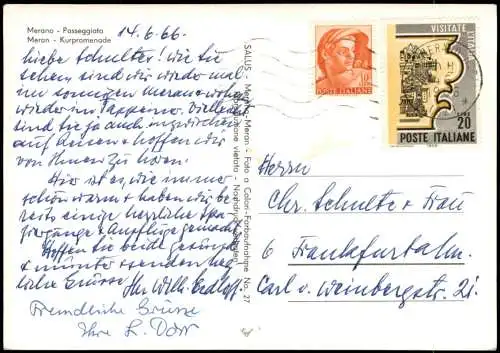 Merano - Passeggiata
Meran - Kurpromenade
14.6.66.
Liebe Schulter! Wie Sie
sehen sind wir wieder mal
im sonnigen Meran wohnh.
wieder in Vielleicht
sind Sie ja auch inzwischen
auf + hoffen wir
von Ihnen zu hören.
Hier ist es, wie immer
schön warm + haben wir be
reits einige herrliche Spa
ziergänge + Ausflüge gemacht
Hoffen Sie beide gesund
+ munter + senden herz
liche Grüsse Ihr Wilh.
Freundliche Grüsse
Ihre L.
SALUS - Merano-Meran - Foto a Colori-Farbaufnahme No. 27
Riproduzione vietata - Nachdruck verboten
10
POSTE ITALIANE
VISITATE
L'ITALIA
LIRE
20
POSTE ITALIANE
Herrn
Chr. Schulte + Frau
6 Frankfurt a/m.
Carl v. Weinbergstr. 21.